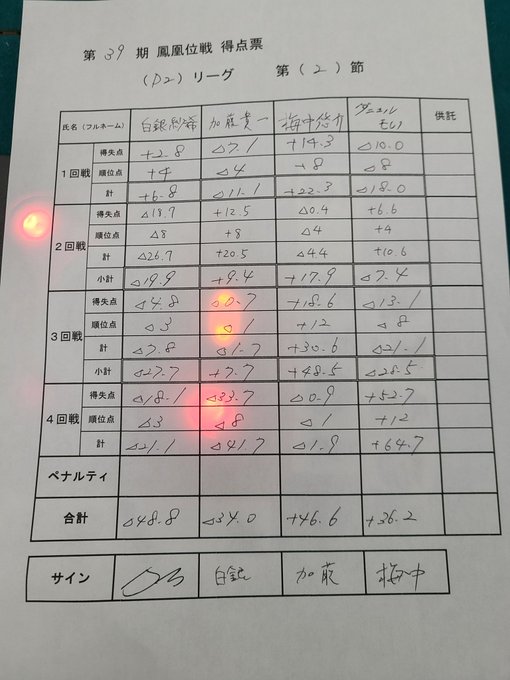 第 39 期 鳳凰位戦 得点票
（D2）リーグ 第（2）節
氏名（フルネーム） 白銀紗希 加藤貴一 梅中悠介 ダニエル もい 供託
1回戦 得失点 +2.8 △7.1 +14.3 △10.0
順位点 +4 △4 +8 △8
計 +6.8 △11.1 +22.3 △18.0
2回戦 得失点 △18.7 +12.5 △0.4 +6.6
順位点 △8 +8 △4 +4
計 △26.7 +20.5 △4.4 +10.6
小計 △19.9 +9.4 +17.9 △7.4
3回戦 得失点 △4.8 △0.7 +18.6 △13.1
順位点 △3 △1 +12 △8
計 △7.8 △1.7 +30.6 △21.1
小計 △27.7 +7.7 +48.5 △28.5
4回戦 得失点 △18.1 △33.7 △0.9 +52.7
順位点 △3 △8 △1 +12
計 △21.1 △41.7 △1.9 +64.7
ペナルティ
合計 △48.8 △34.0 +46.6 +36.2
サイン 白銀 加藤 梅中